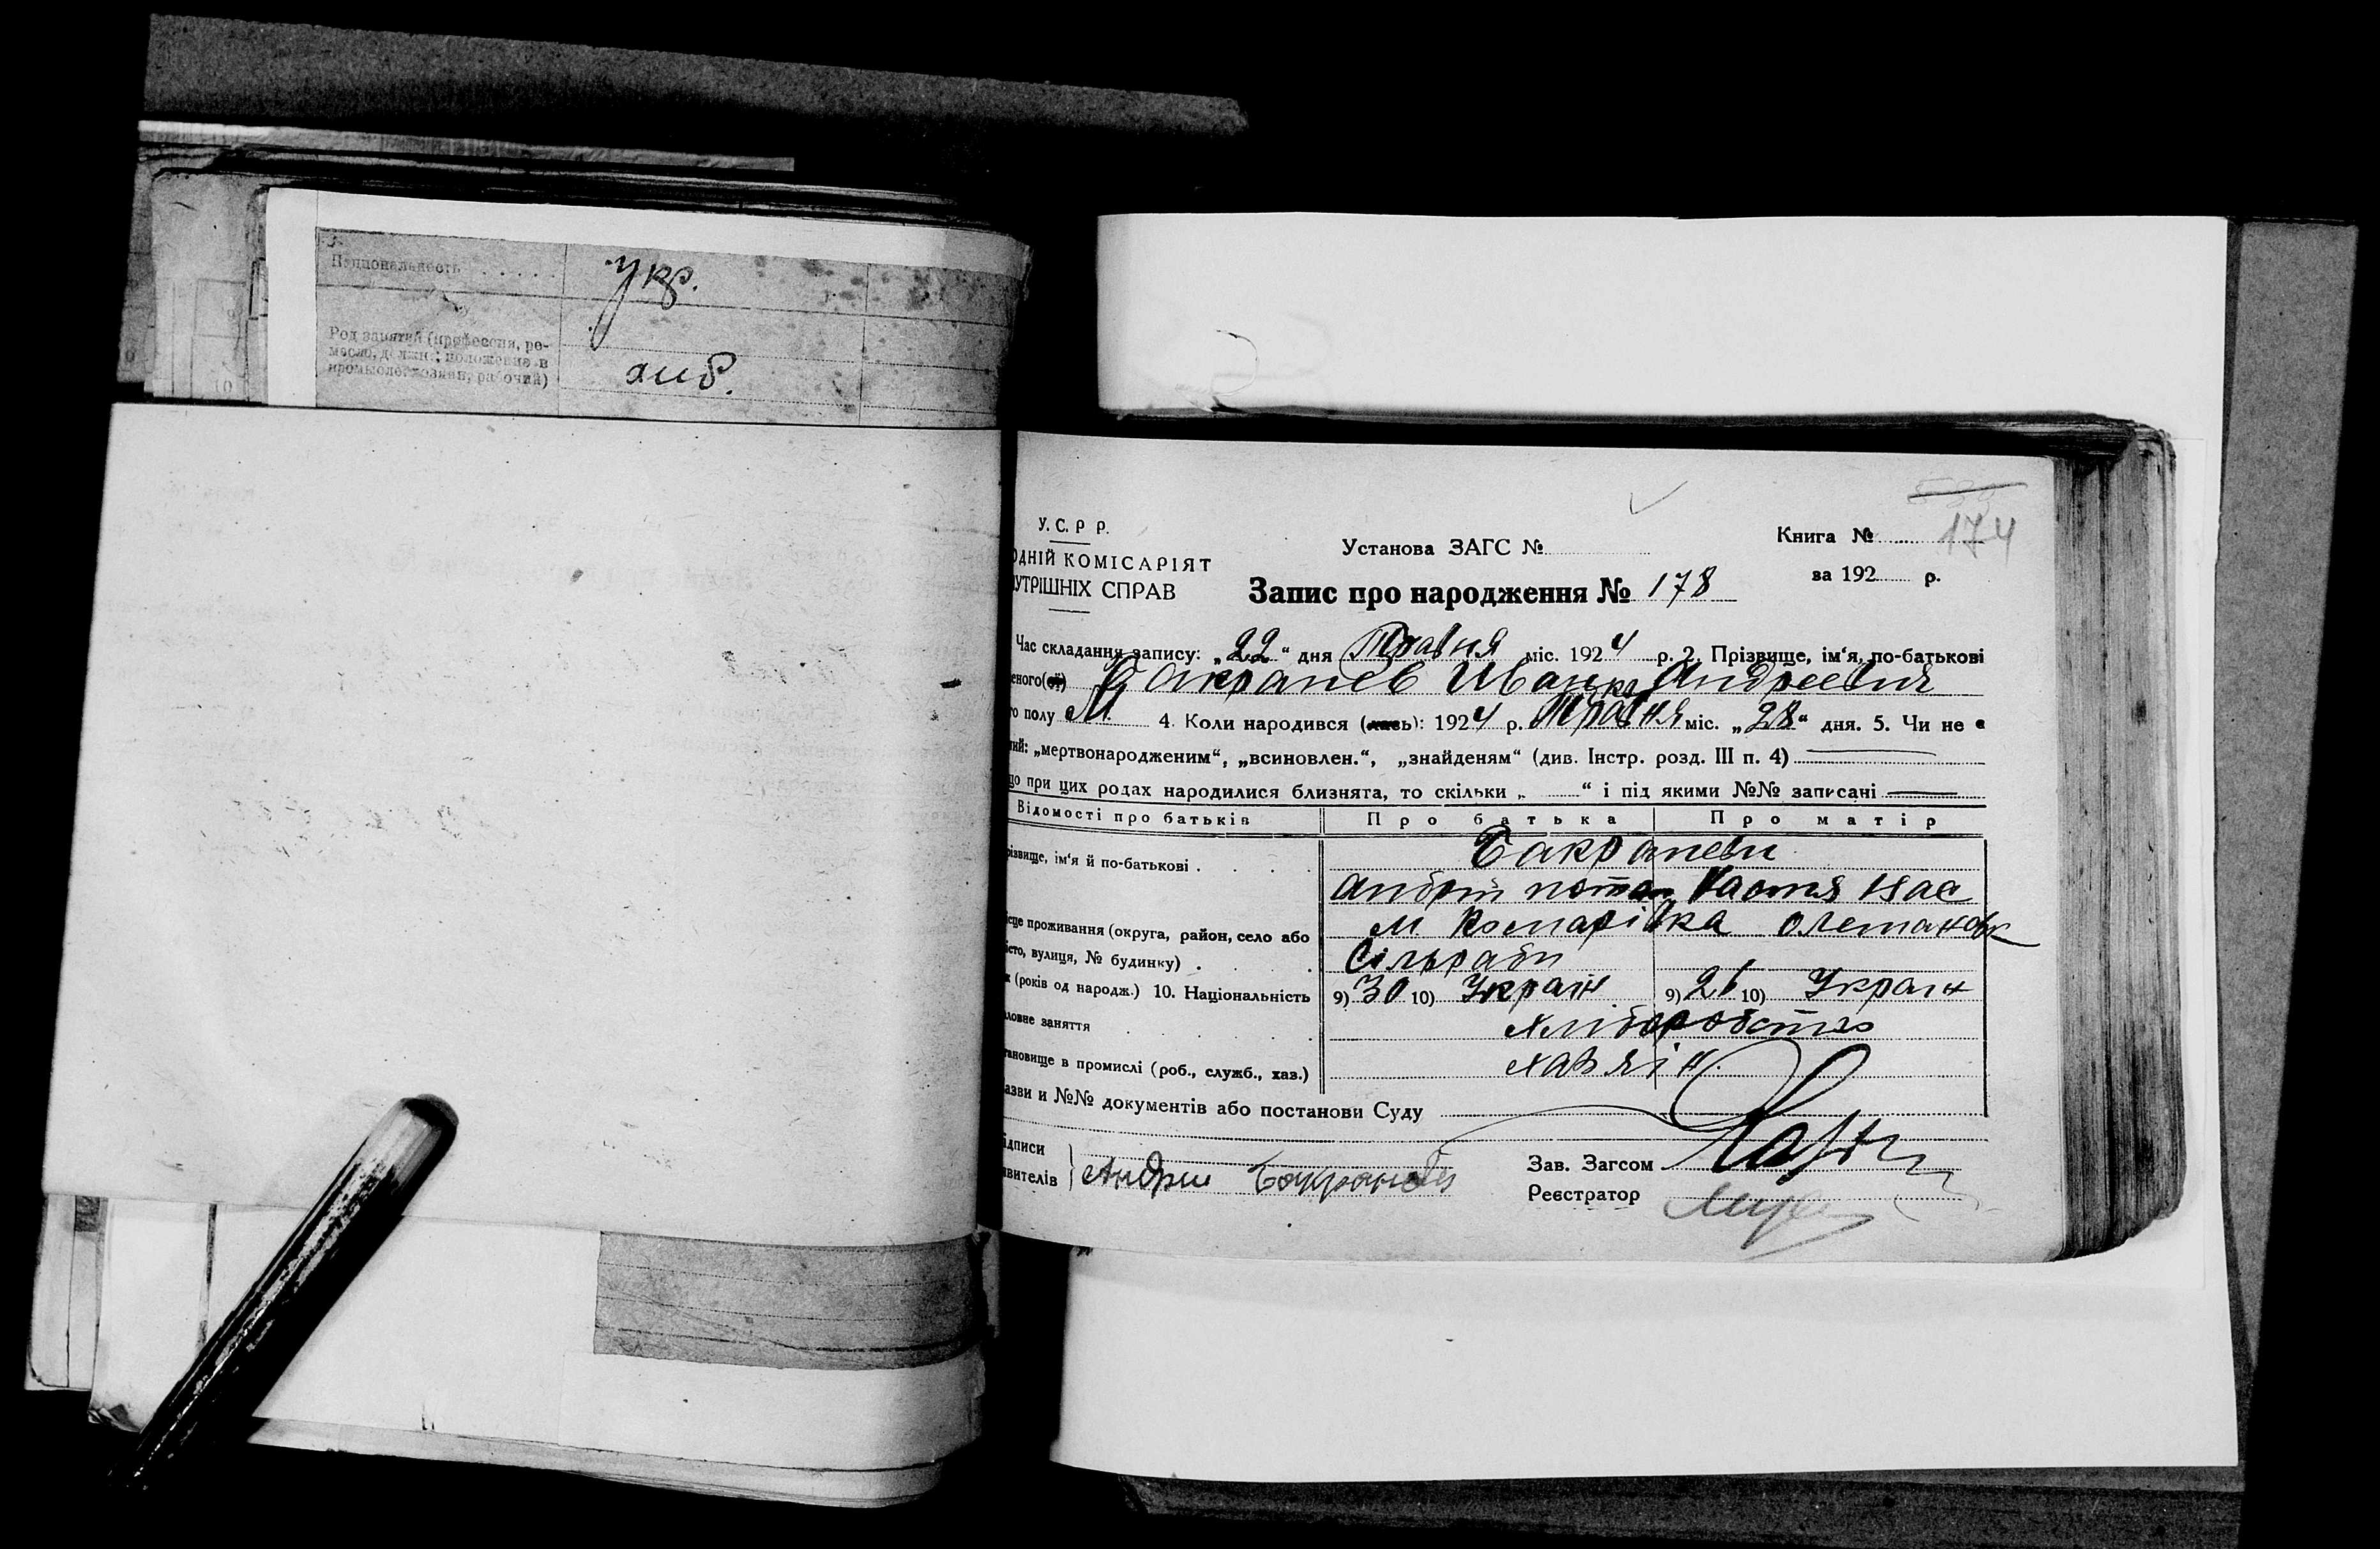 Национальность . . . . .
укр.
Род занятий (профессия, ре-
месло, должн.; положение в
промысле: хозяин, рабочий)
хліб.
174
У. С. Р Р.
ОДНІЙ КОМІСАРІЯТ
УТРІШНІХ СПРАВ
Установа ЗАГС №
Книга №
за 192 р.
Запис про народження № 178
Час складання запису: „22“ дня Травня міс. 1924 р. 2. Прізвище, ім‘я, по-батькові
еного(ої) Бакранев Иван Андреевич
го полу М. 4. Коли народився (лась): 1924 р. Травня міс. „28“ дня. 5. Чи не є
ий: „мертвонародженим“, „всиновлен.“, „знайденям“ (див. Інстр. розд. III п. 4)
що при цих родах народилися близнята, то скільки „ “ і під якими №№ записані
Відомості про батьків
Про батька
Про матір
різвище, ім‘я й по-батькові . . . .
Бакраневи
Настя
ісце проживання (округа, район, село або
істо, вулиця, № будинку) . . . .
м. Комарівка
Сільради
к (років од народж.) 10. Національність
9) 30 10) Україн
9) 26 10) Україн
ловне заняття . . . .
Хліборобство
тановище в промислі (роб., служб., хаз.)
хазяін.
азви и №№ документів або постанови Суду
ідписи
явителів
Андрей
Зав. Загсом
Реєстратор